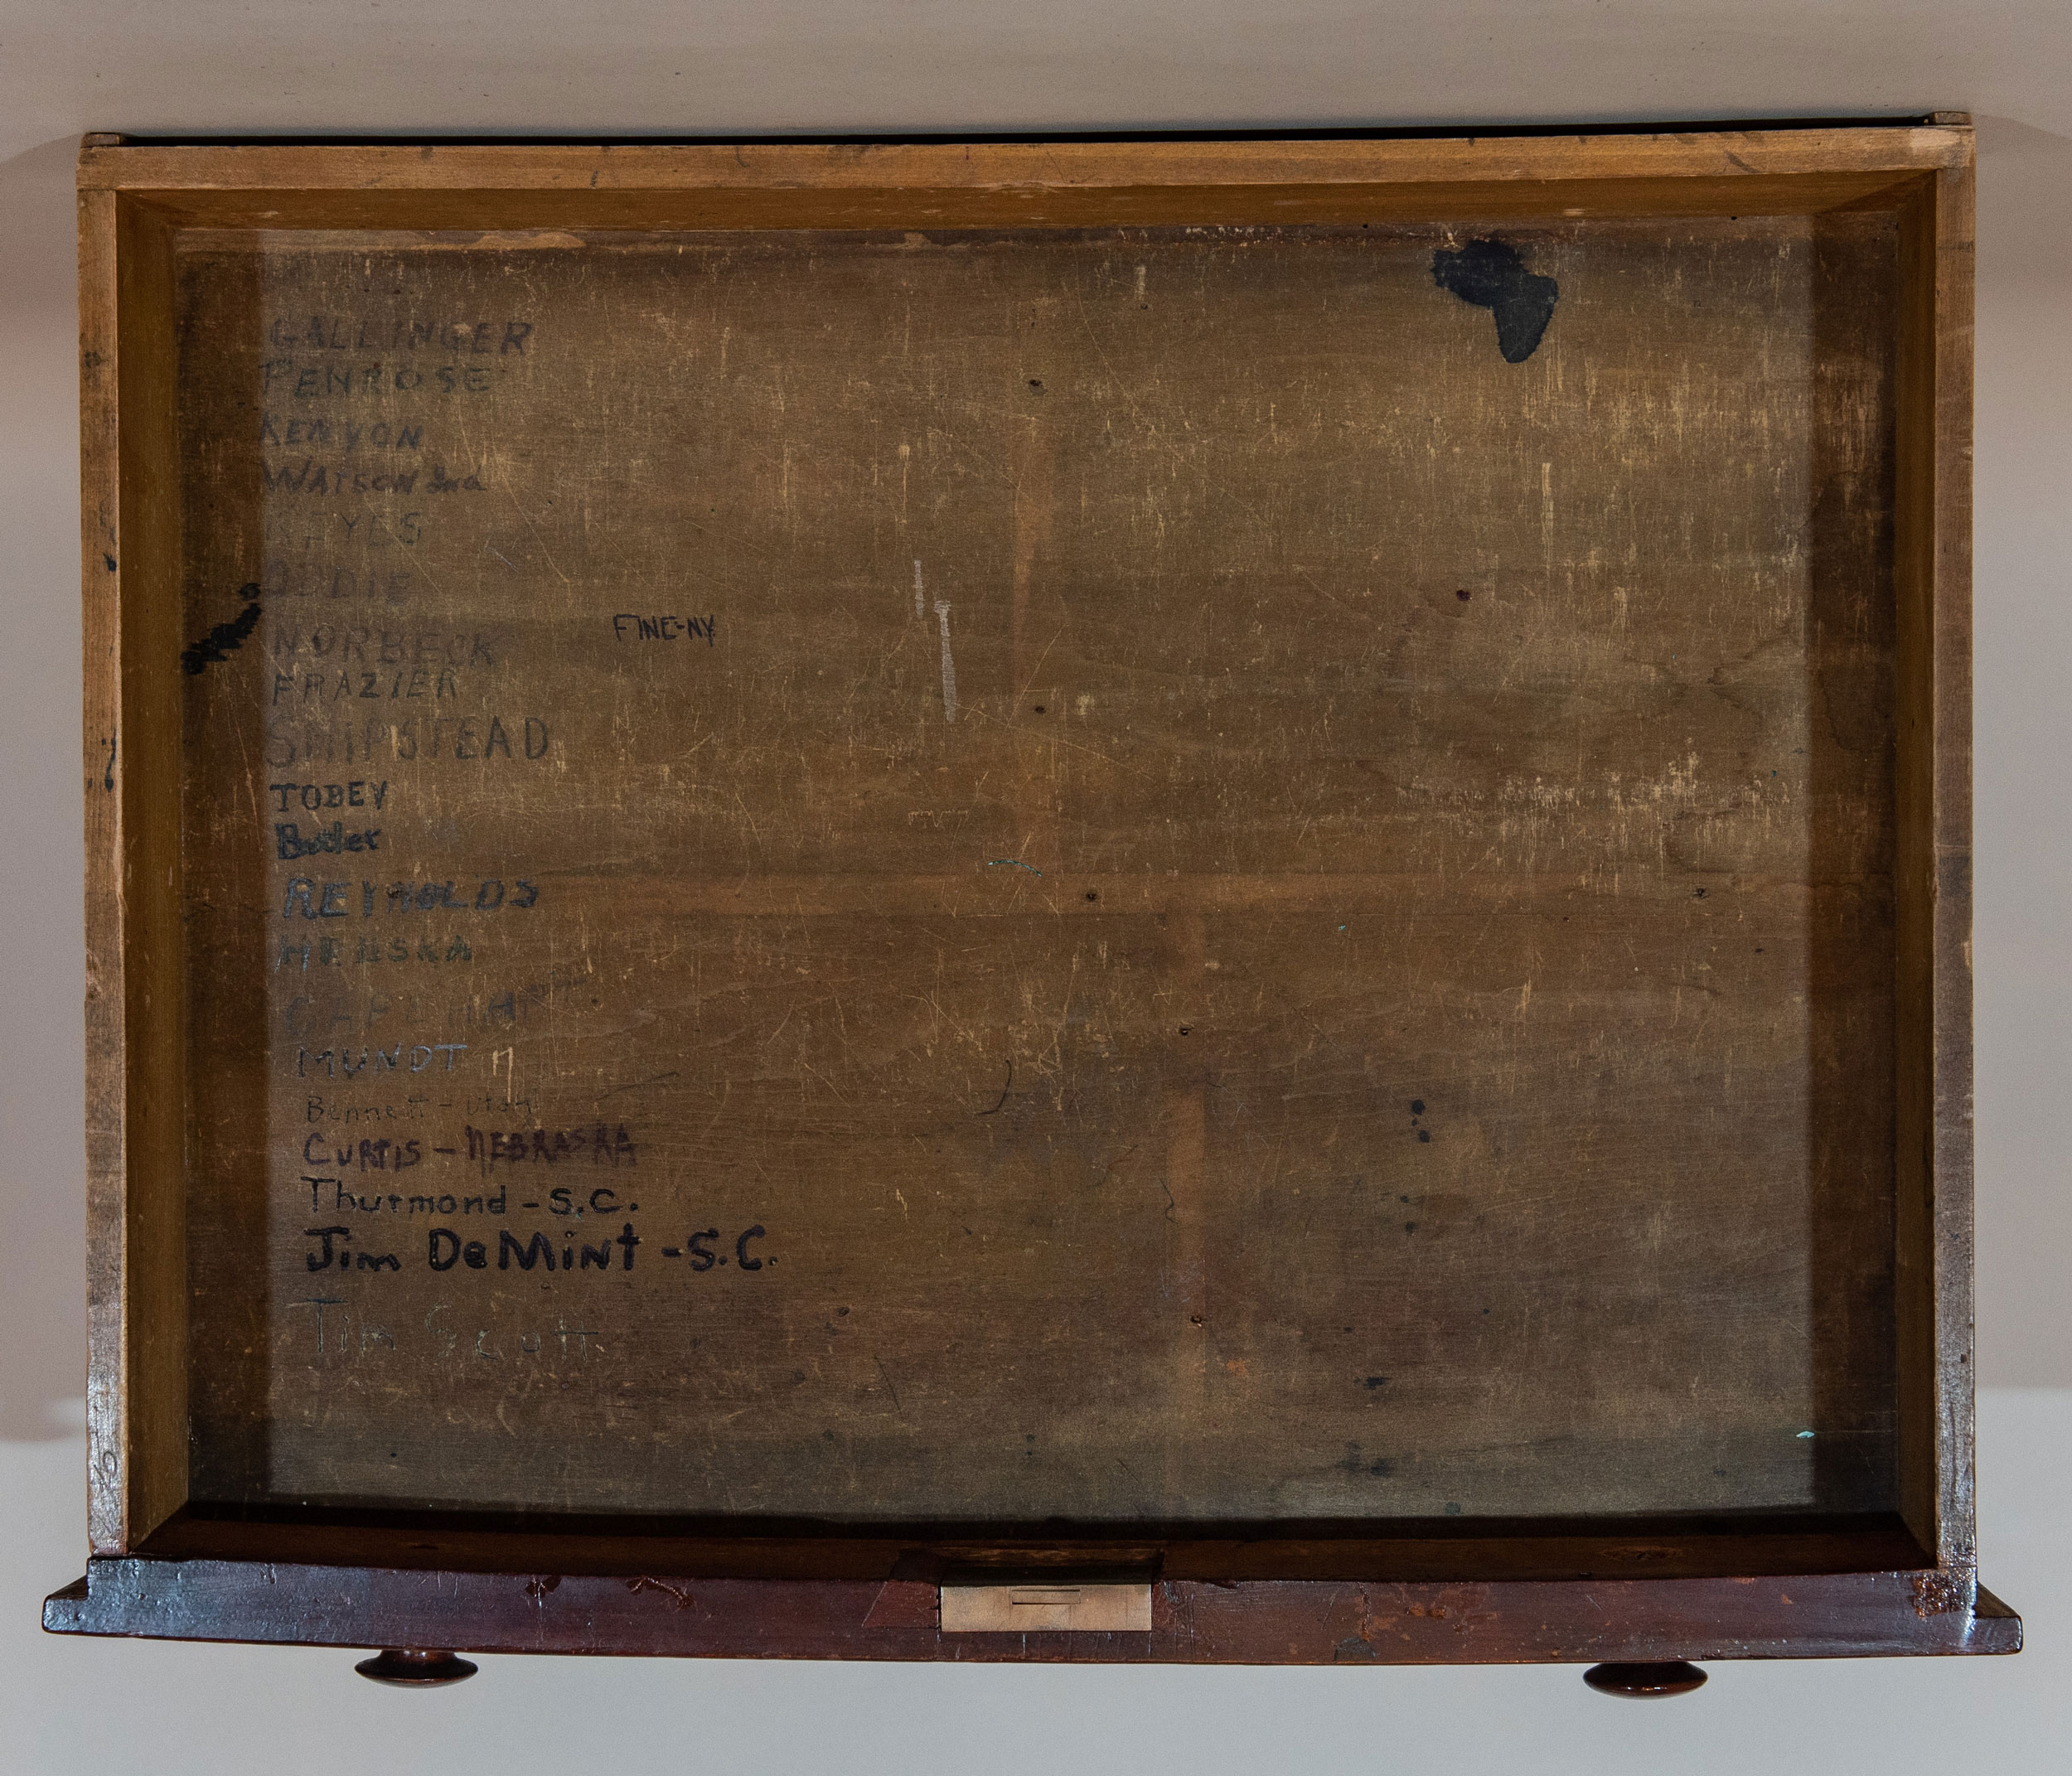 GALLINGER
PENROSE
KENYON
WATSON 2nd
KEYES
ODDIE
NORBECK
FINE-NY
FRAZIER
SHIPSTEAD
TOBEY
Butler
REYNOLDS
MUNDT
Bennett - Utah
CURTIS - NEBRASKA
Thurmond - S.C.
Jim DeMint - S.C.
Tim Scott